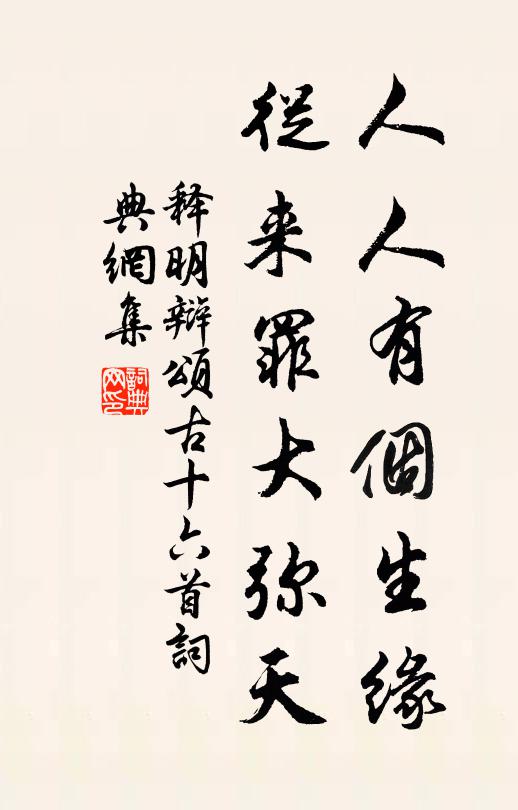 人人有個生緣
從来罪大弥天
释明辩頌古十六首詞
典網集
詞典網印